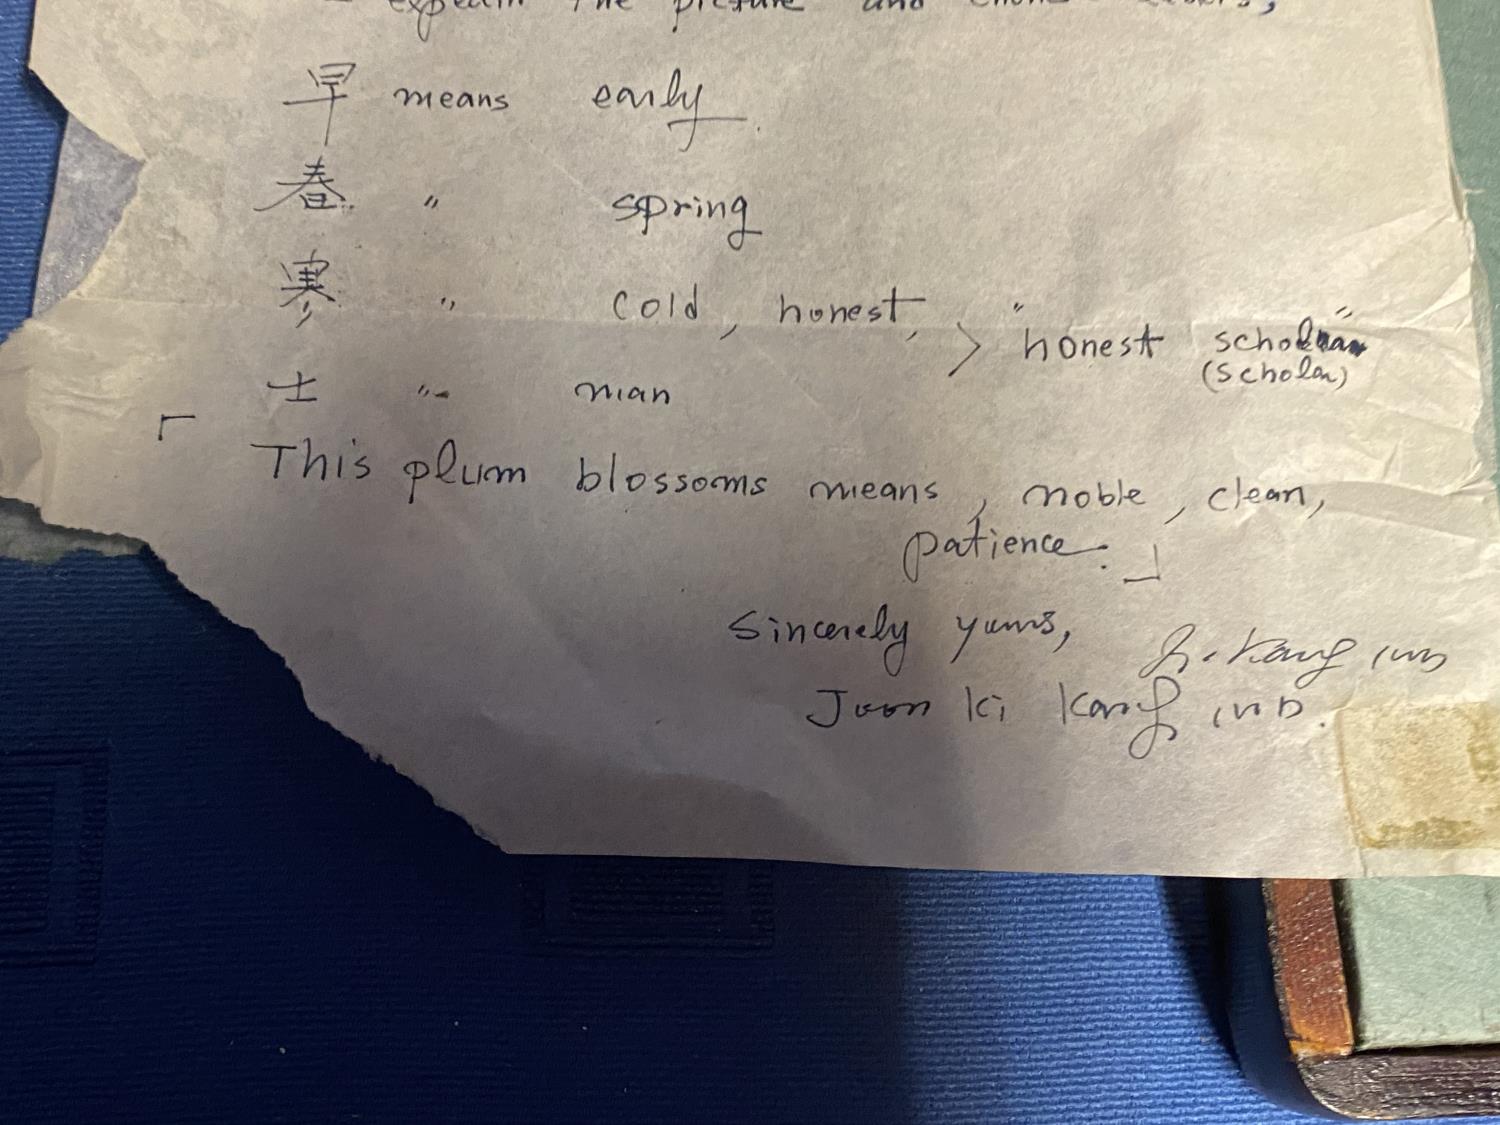 explain the picture and
早 means early.
春 〃 spring
寒 〃 cold, honest, > "honest scholar"
(scholar)
士 〃 man
「 This plum blossoms means, noble, clean,
patience. 」
Sincerely yours,
Joon Ki Kang